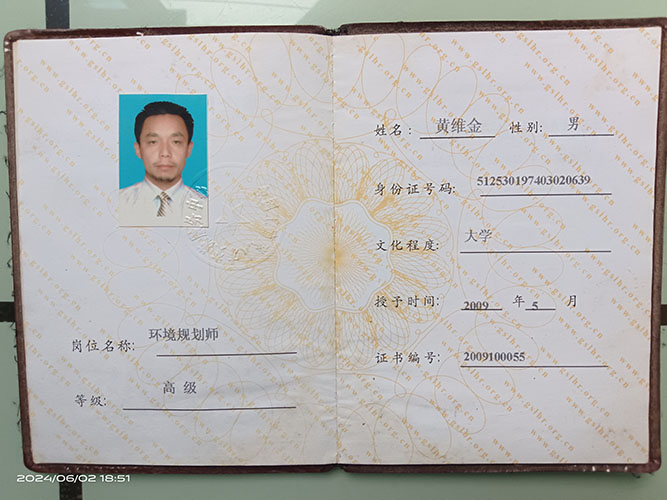 岗位名称: 环境规划师
等级: 高 级
姓名: 黄维金 性别: 男
身份证号码: 512530197403020639
文化程度: 大学
授予时间: 2009 年 5 月
证书编号: 2009100055
www.gslhr.org.cn
2024/06/02 18:51